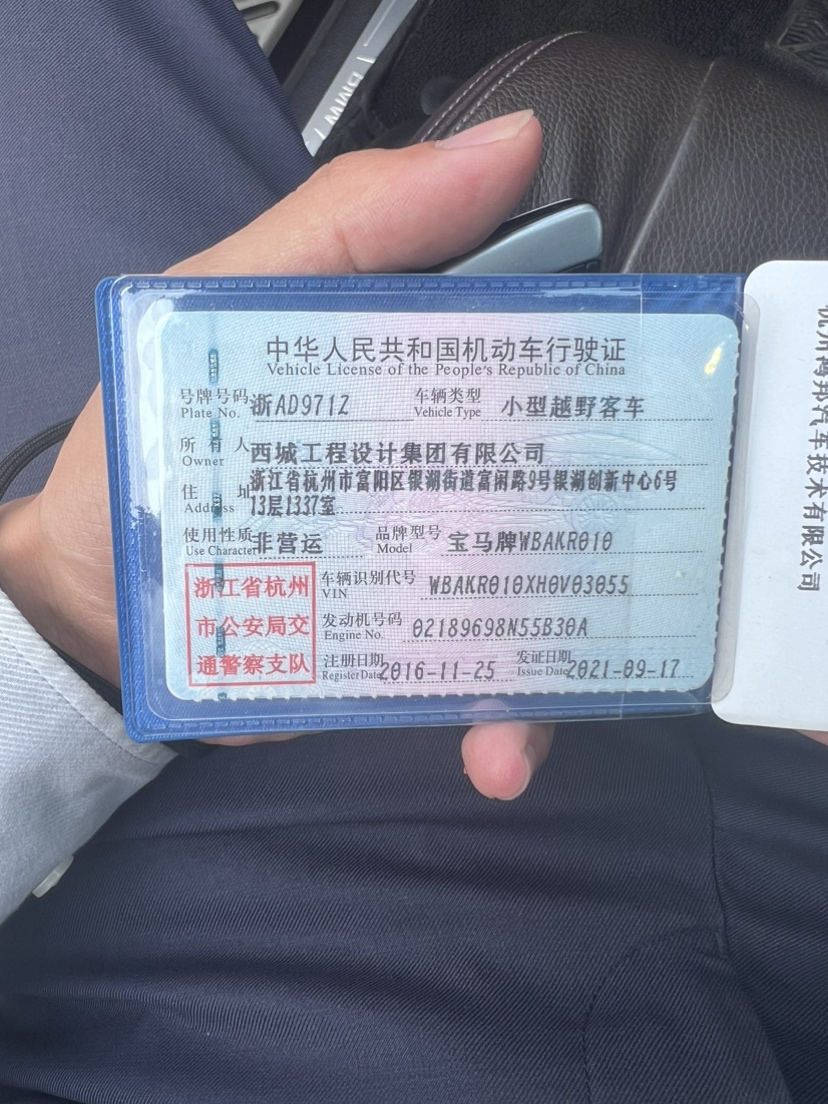 BMW
中华人民共和国机动车行驶证
Vehicle License of the People's Republic of China
号牌号码 浙AD971Z 车辆类型 小型越野客车
Plate No. Vehicle Type
所有人 西城工程设计集团有限公司
Owner
住址 浙江省杭州市富阳区银湖街道富闲路9号银湖创新中心6号
Address 13层1337室
使用性质 非营运 品牌型号 宝马牌WBAKR010
Use Character Model
浙江省杭州
市公安局交
通警察支队
车辆识别代号 WBAKR010XH0V03055
VIN
发动机号码 02189698N55B30A
Engine No.
注册日期 2016-11-25 发证日期 2021-09-17
Register Date Issue Date
杭州博邦汽车技术有限公司